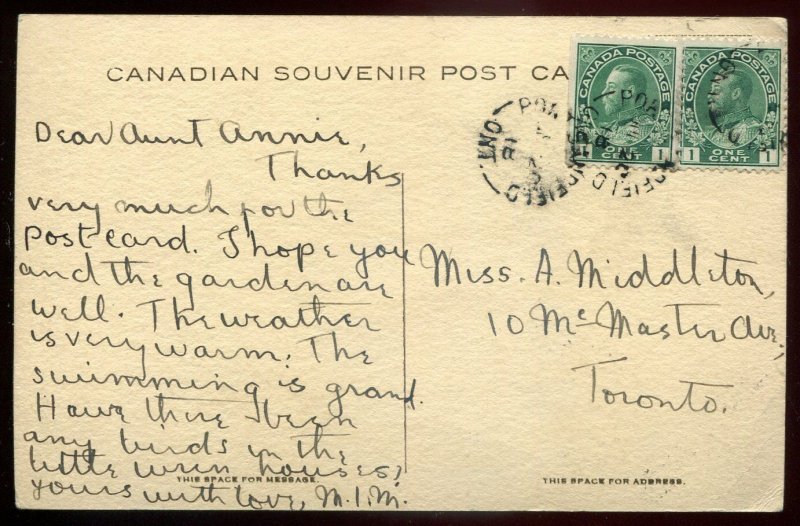 CANADIAN SOUVENIR POST CA
CANADA POSTAGE
1 ONE CENT 1
CANADA POSTAGE
1 ONE CENT 1
ONT.
Dear Aunt Annie,
Thanks
very much for the
postcard. I hope you
and the garden are
well. The weather
is very warm. The
swimming is grand.
Have there been
any birds in the
little wren houses?
yours with love, M.I.M.
THIS SPACE FOR MESSAGE.
Miss. A. Middleton,
10 McMaster Ave.,
Toronto.
THIS SPACE FOR ADDRESS.